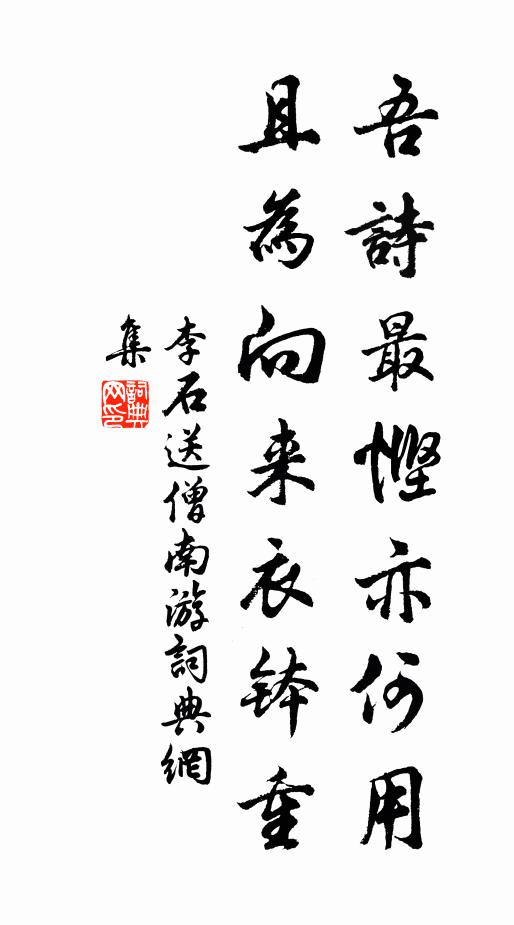 吾詩最慳亦何用
且為向来衣鉢重
李石送僧南游詞典網
集
詞典網印